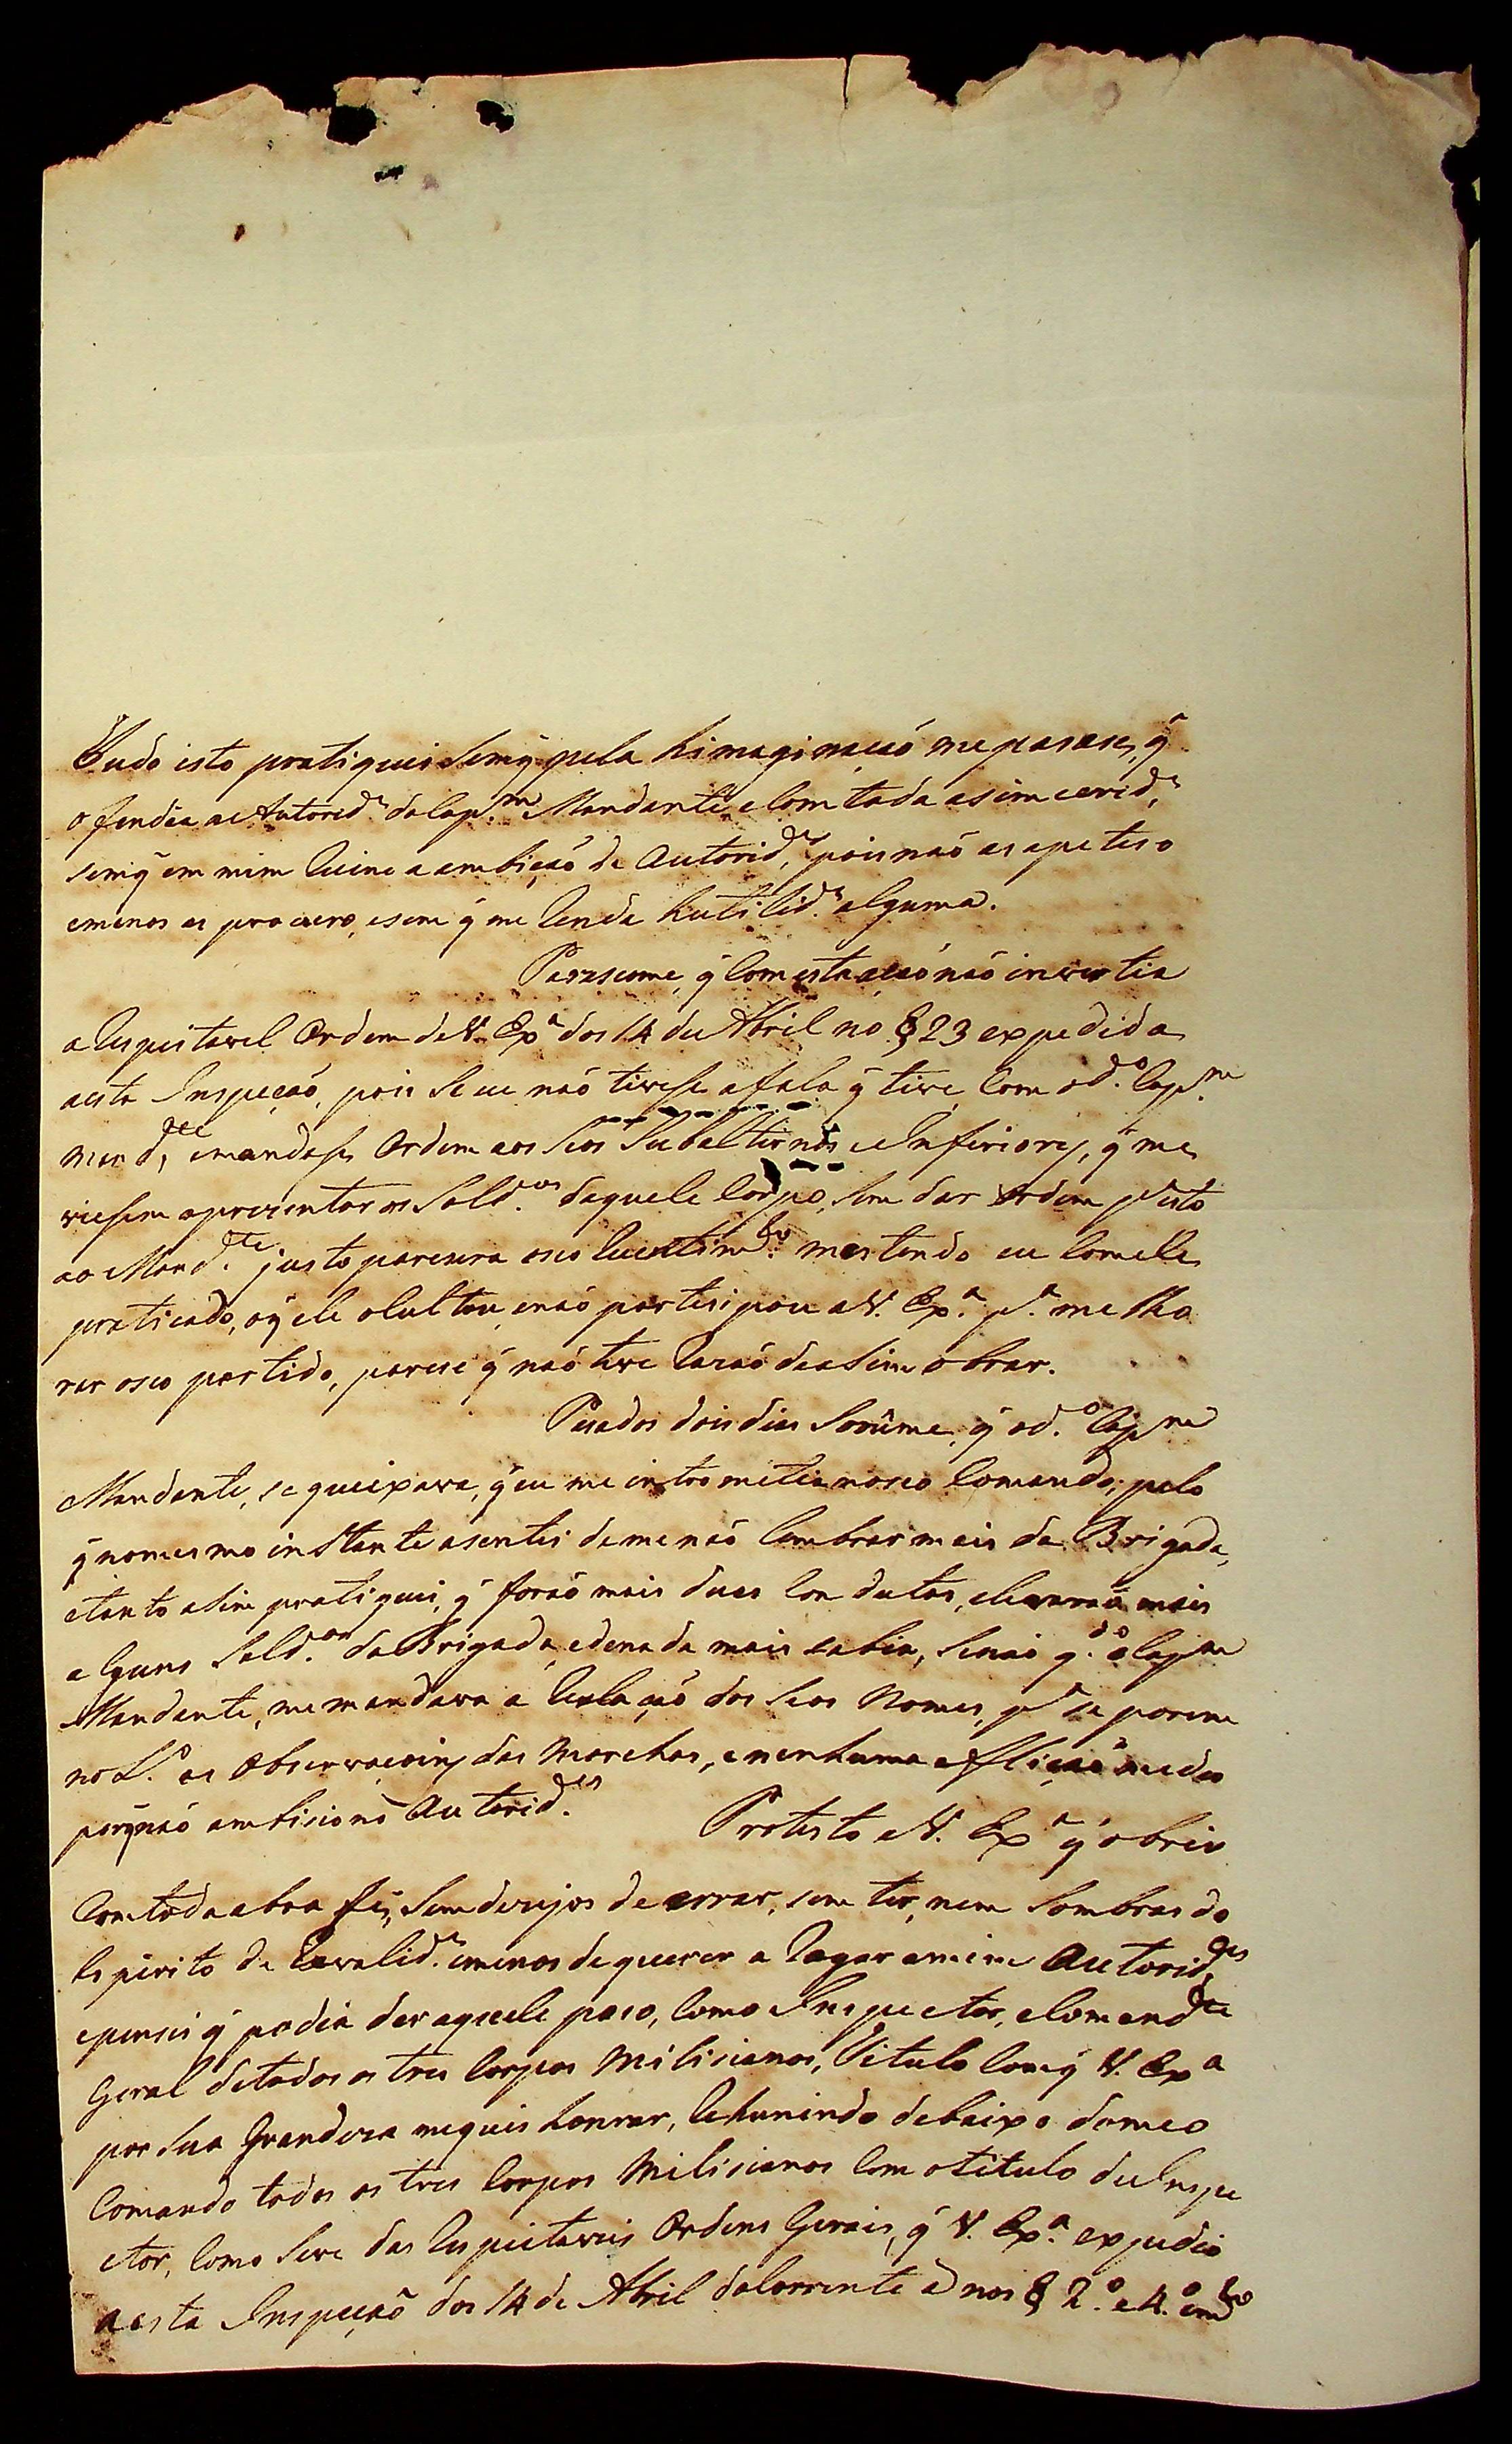 Tudo isto pratiquei semq̃ pela himaginacaõ me pasase, q̃
ofendia as Autorid.es do Cap.m Mandante, e com toda a simcerid.e
semq̃ em mim Reine a ambicaõ de Autorid.es, pois naõ as apeteso
e menos as procuro, e sem q̃ me Renda hutilid.e alguma.
Paresceme, q̃ Com esta acaõ naõ invertia
a Respeitavel Ordem de V. Ex.a dos 14 de Abril no § 23 expedida
a esta Inspecaõ, pois se eu naõ tivese a fala q̃ tive Com o d.o Cap.m
Mand.te e mandase Ordem aos Seos Subalternos e Inferiores, q̃ me
viesem aprezentar os Sold.os daquele Corpo, sem dar Ordem p.a isto
ao Mand.te justo paresera o seo Recentim.to mas tendo eu Com ele
praticado, o q̃ ele ocultou, e naõ partisipou a V. Ex.a p.a melho
rar o seo partido, parese q̃ naõ teve Razaõ de asim obrar.
Pasados dois dias Sooûme, q̃ o d.o Cap.m
Mandante, se queixava, q̃ eu me intrometia no seo Comando; pelo
q̃ no mesmo instante asentei de me naõ lembrar mais da Brigada,
e tanto asim pratiquei, q̃ foraõ mais duas Condutas, e levaraõ mais
alguns Sold.os da Brigada, e de nada mais sabia, senaõ q.do o Cap.m
Mandante, me mandava a Relacaõ dos Seos Nomes, p.a se porem
no L.o as Observacoins das Marchas, e nenhuma aflicaõ me deo
porq̃ naõ ambiciono Autorid.es
Protesto a V. Ex.a q̃ obrei
Com toda a boa fé, sem dezejos de errar, sem ter, nem Sombras do
Espirito de Revalid.e e menos de querer alegar a mim Autorid.es
e pensei q̃ podia dar aquele paso, Como Inspector, e Comand.te
Geral de todos os tres Corpos Milicianos, Titulo Com q̃ V. Ex.a
por Sua Grandeza me quis honrar, Rehunindo debaixo do meo
Comando todos os tres Corpos Milicianos Com o titulo de Inspe
ctor, Como Se ve das Respeitaveis Ordens Gerais, q̃ V. Ex.a expedio
a esta Inspecaõ dos 14 de Abril do Corrente A nos § 2.o e 4.o